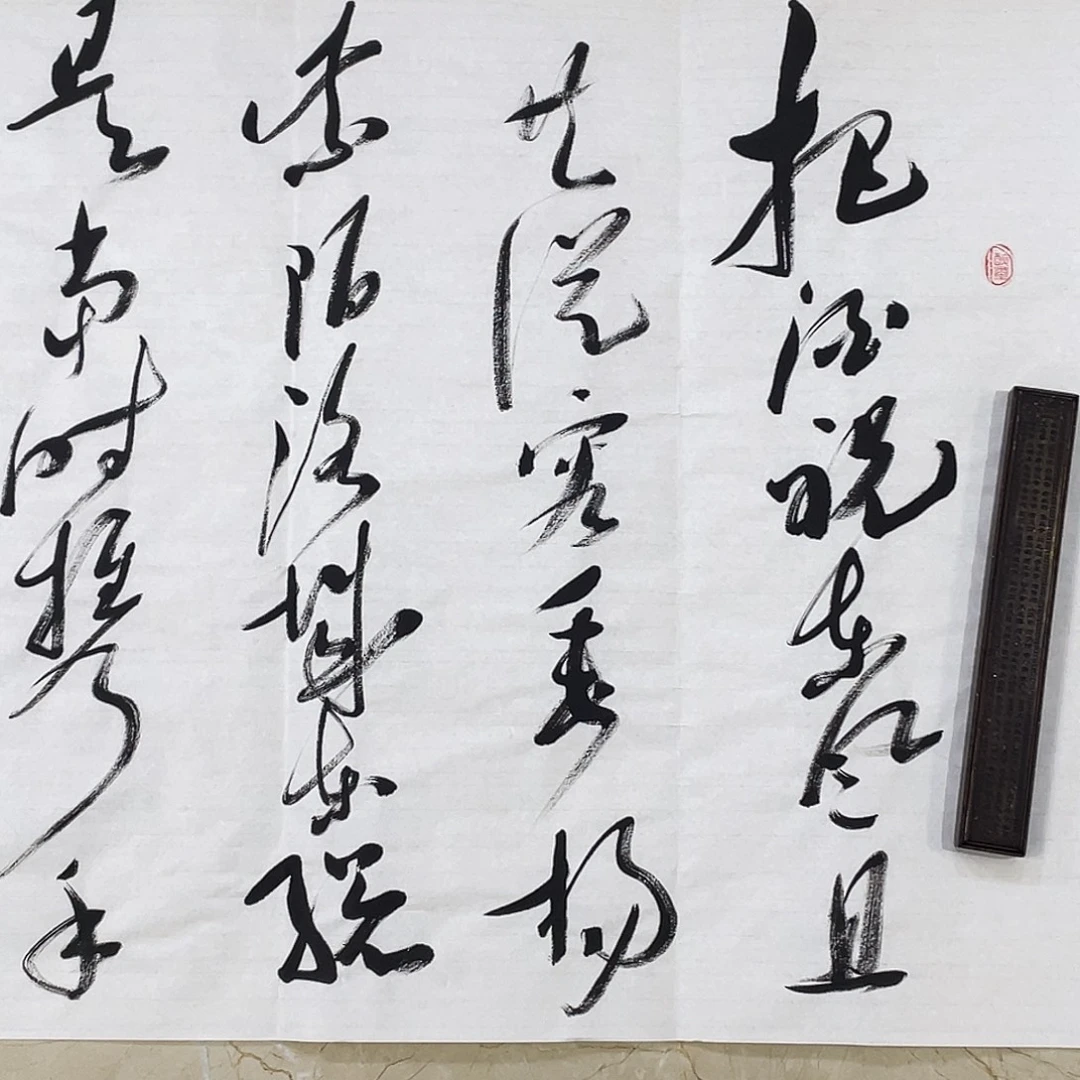 把酒祝东风且
共从容垂杨
紫陌洛城东总
是当时携手